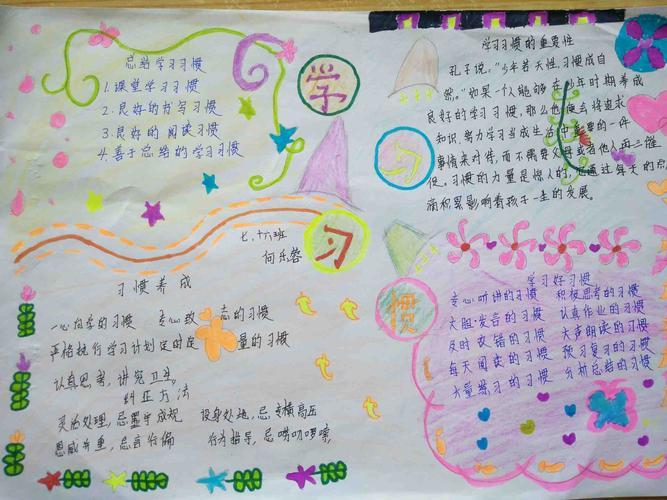 总结学习习惯
1.课堂学习习惯
2.良好的书写习惯
3.良好的阅读习惯
4.善于总结的学习习惯
学
习
习
惯
七.十六班
何乐蓉
学习习惯的重要性
孔子说:“少年若天性习惯成自
然。”如果一个人能够在少年时期养成
良好的学习习惯,那么他便会将追求
知识,努力学习当成生活中重要的一件
事情来对待,而不需要父母或者他人再三催
促。习惯的力量是惊人的,它通过每天的点
滴积累影响着孩子一生的发展。
习惯养成
一心向学的习惯 专心致志的习惯
严格执行学习计划定时定量的习惯
认真思考,讲究卫生。
纠正方法
灵活处理,忌墨守成规 设身处地,忌专横高压
恩威并重,忌言行偏 行为指导,忌唠叨啰嗦
学习好习惯
专心听讲的习惯 积极思考的习惯
大胆发言的习惯 认真作业的习惯
及时改错的习惯 大声朗读的习惯
每天阅读的习惯 预习复习的习惯
大量练习的习惯 分析总结的习惯